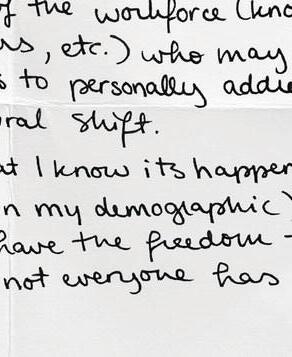 of the workforce (kno
rs, etc.) who may
s to personally addre
ral shift.
at I know its happen
n my demographic)
have the freedom -
not everyone has